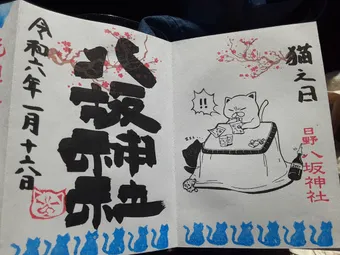 猫之日
日野 八坂神社
!!
八坂神社
令和六年一月十六日